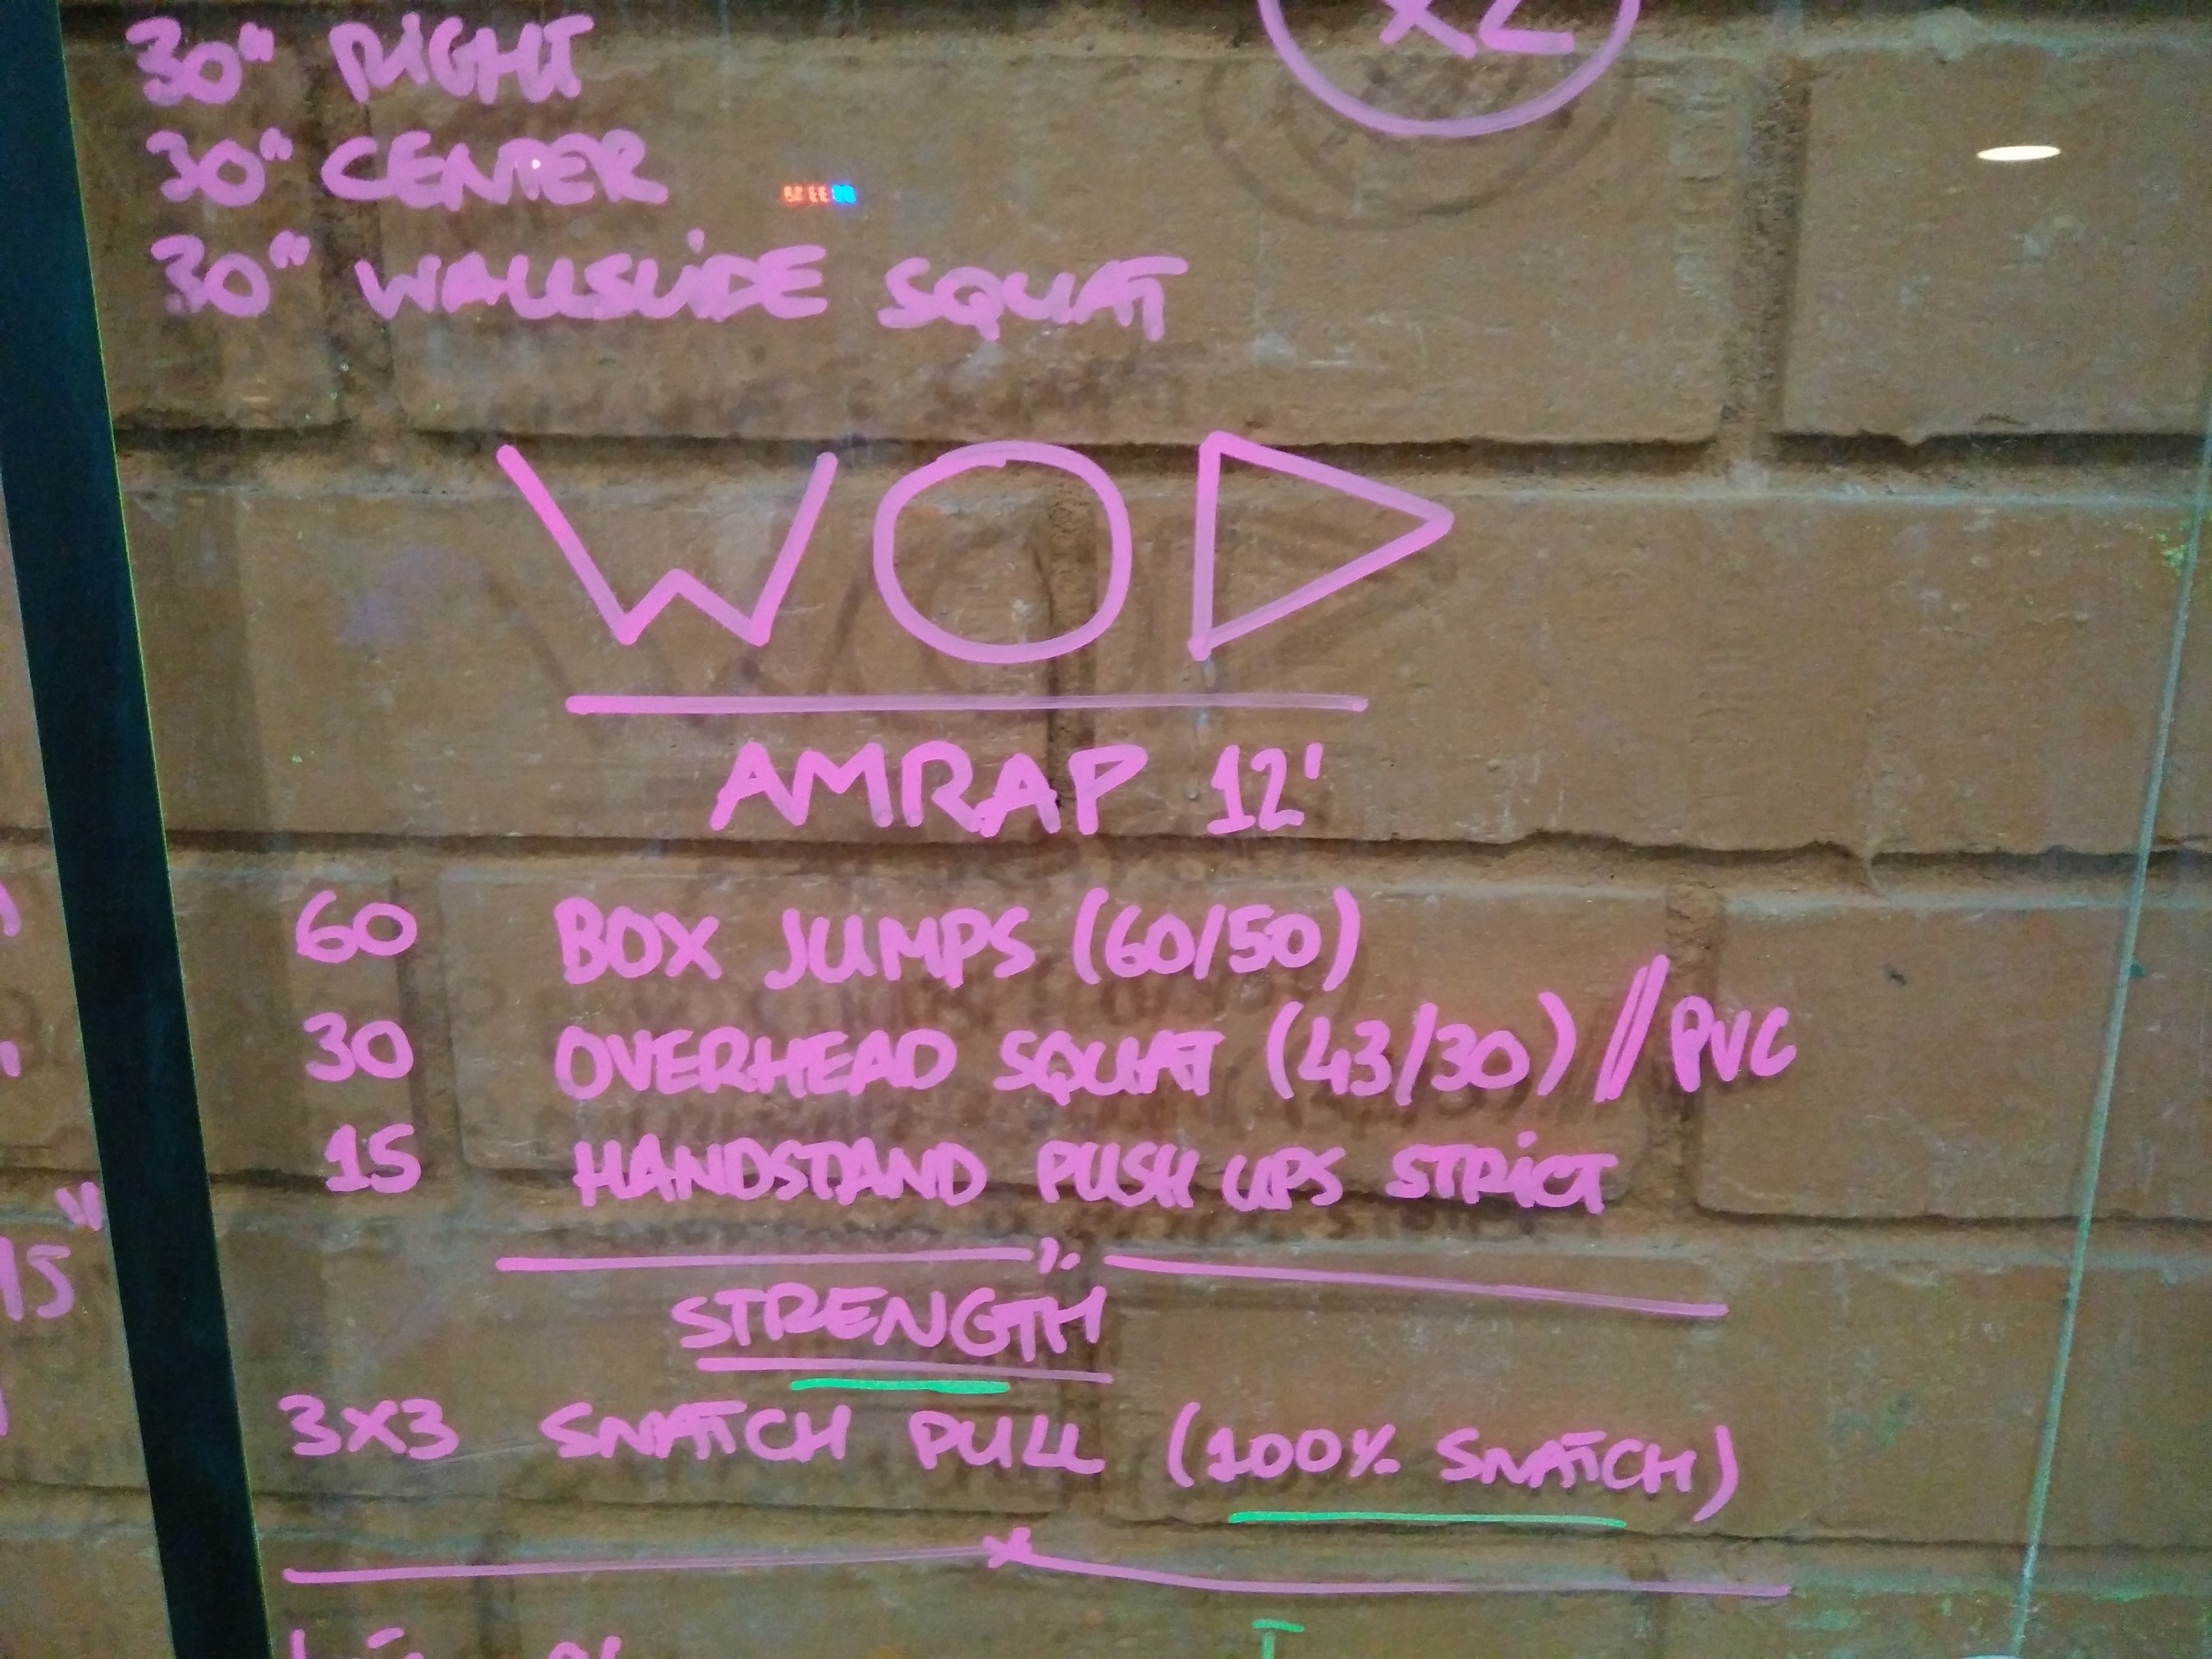 x2
30" RIGHT
30" CENTER
30" WALLSLIDE SQUAT
WOD
AMRAP 12'
60 BOX JUMPS (60/50)
30 OVERHEAD SQUAT (43/30) // PVC
15 HANDSTAND PUSH UPS STRICT
STRENGTH
3X3 SNATCH PULL (100% SNATCH)
15"